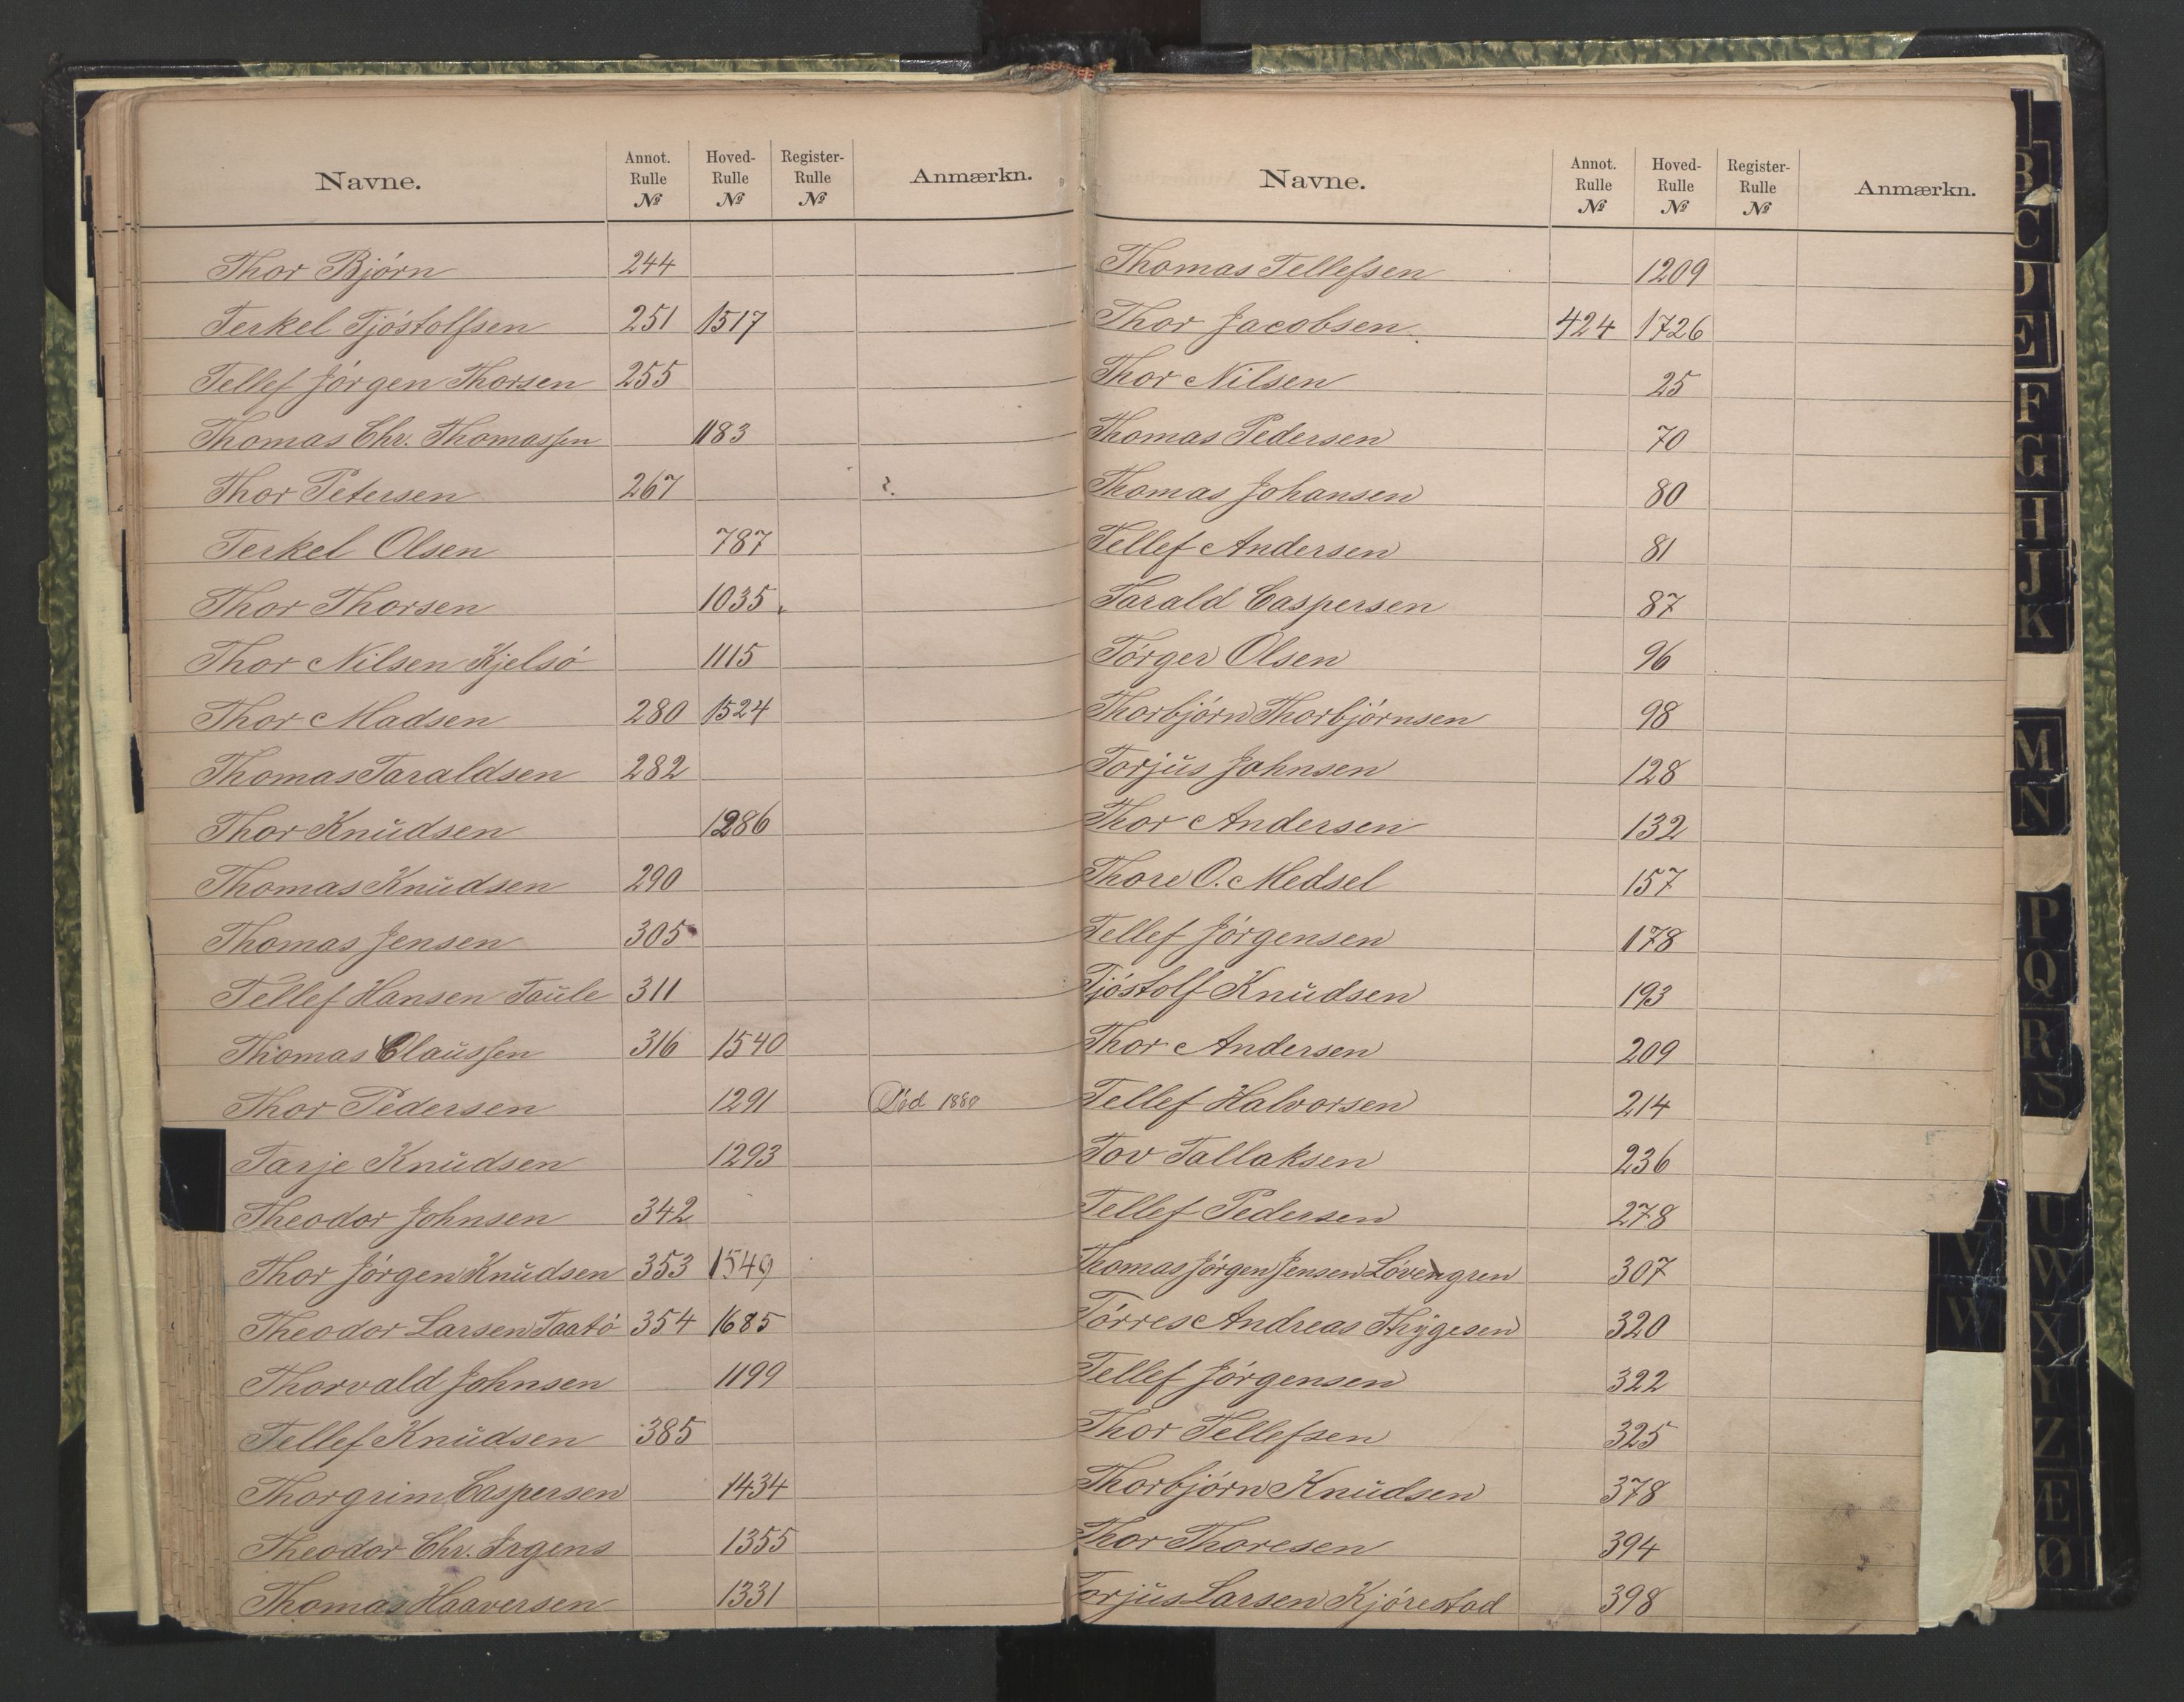 Navne. Annot. Rulle № Hoved- Rulle № Register- Rulle № Anmærkn.
Thor Bjørn 244
Terkel Tjöstolfsen 251 1517
Tellef Jörgen Thorsen 255
Thomas Chr. Thomassen 1183
Thor Petersen 267 ?.
Terkel Olsen 787
Thor Thorsen 1035
Thor Nilsen Kjelsö 1115
Thor Madsen 280 1524
Thomas Taraldsen 282
Thor Knudsen 1286
Thomas Knudsen 290
Thomas Jensen 305
Tellef Hansen Taule 311
Thomas Claussen 316 1540
Thor Pedersen 1291 Död 1880
Tarje Knudsen 1293
Theodor Johnsen 342
Thor Jörgen Knudsen 353 1549
Theodor Larsen Taatö 354 1685
Thorvald Johnsen 1199
Tellef Knudsen 385
Thorgrim Caspersen 1434
Theodor Chr. Irgens 1355
Thomas Haaversen 1331
Navne. Annot. Rulle № Hoved- Rulle № Register- Rulle № Anmærkn.
Thomas Tellefsen 1209
Thor Jacobsen 424 1726
Thor Nilsen 25
Thomas Pedersen 70
Thomas Johansen 80
Tellef Andersen 81
Tarald Caspersen 87
Törger Olsen 96
Thorbjörn Thorbjörnsen 98
Torjus Johnsen 128
Thor Andersen 132
Thore O. Medsel 157
Tellef Jörgensen 178
Tjöstolf Knudsen 193
Thor Andersen 209
Tellef Halvorsen 214
Tov Tallaksen 236
Tellef Pedersen 278
Thomas Jörgen Jensen Lövengren 307
Törres Andreas Thygesen 320
Tellef Jörgensen 322
Thor Tellefsen 325
Thorbjörn Knudsen 378
Thor Thoresen 394
Torjus Larsen Kjörestad 398
B
C
D
E
F
G
H
J
K
M
N
P
Q
R
S
U
V
W
W
X
Y
Z
Æ
Ø